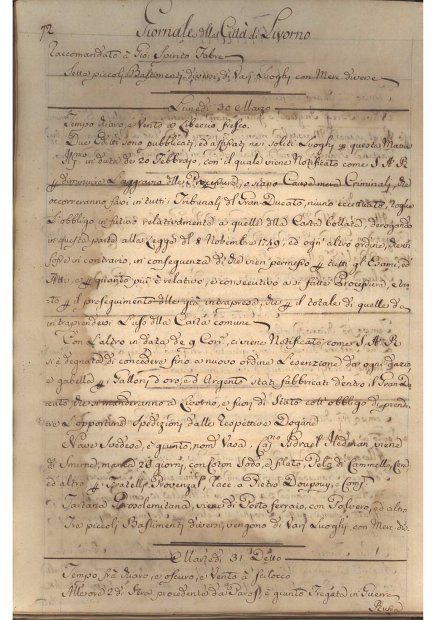 72
Giornale della Città di Livorno
Raccomandato à Gio: Spirito Fabre
Sette piccoli Bastimenti diversi di Varj Luoghi con Merc diverse
Lunedì 30 Marzo
Tempo chiaro, e Vento à Libeccio fresco.
Due Editti sono pubblicati, ed affissi ne' soliti Luoghi q questa Mane
in data de 20 Febbrajo, con il quale viene Notificato come S A R
diminuire L'aggravio delle Processure, o siano Cause mere Criminali, che
occorreranno farsi in tutti i Tribunali del Gran Ducato, niuno eccettuato, toglie
L'obbligo in futuro relativamente a quelle della Carta bollata, derogando
in questa parte alla Legge del 1 Novembre 1749, ed ogni altro ordine, che vi
fosse in contrario, in conseguenza di che vien permesso tutti gl'Esami, ed
Atti, e quanto più è relativo, e consecutivo a si fatte Procesure, e tanto
il proseguimento delle già intraprese, che il totale di quelle da
intraprendersi L'uso della Carta comune
Con L'altro in data de 9 Corr, ci viene Notificato come S. A. R.
si è degnata di concedere fino a nuovo ordine L'esenzione da ogni dazio
e gabella Galloni d'oro, e d'Argento stati fabbricati dentro il Gran Du-
cato che si manderanno a Livorno, e fuori di Stato coll'obbligo di prende-
re L'opportune Spedizioni dalle Respettive Dogane
Nave Svedese, è giunto, nom Vasa Cap Hedman viene
di Smirne, manca 28 giorni, con Coton Sodo, e filato, Pelo di Cammello,
ed altro Fratelli Provenzal, Race a Pietro Doupouy, Cons
Tartana Gerosolimitana, viene di Porto ferraio, con Polvere, ed altro
Tre piccoli Bastimenti diversi, vengono di Varj Luoghi con Merc: di:
Martedì 31 Detto
Tempo frà chiaro, e oscuro, e Vento à scilocco
Alle ore 2 di Sera procedente da Paros è giunto Fregata in Guerra
Russa